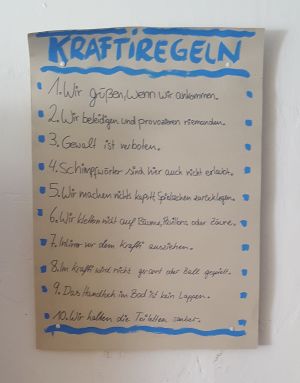 KRAFTIREGELN
1. Wir grüßen, wenn wir ankommen.
2. Wir beleidigen und provozieren niemanden.
3. Gewalt ist verboten.
4. Schimpfwörter sind hier auch nicht erlaubt.
5. Wir machen nichts kaputt, Spielsachen zurücklegen.
6. Wir klettern nicht auf Bäume, Pavillons oder Zäune.
7. vor dem Krafti ausziehen.
8. Im Krafti wird nicht gerannt oder Ball gespielt.
9. Das Handtuch im Bad ist kein Lappen.
10. Wir halten die Toiletten sauber.